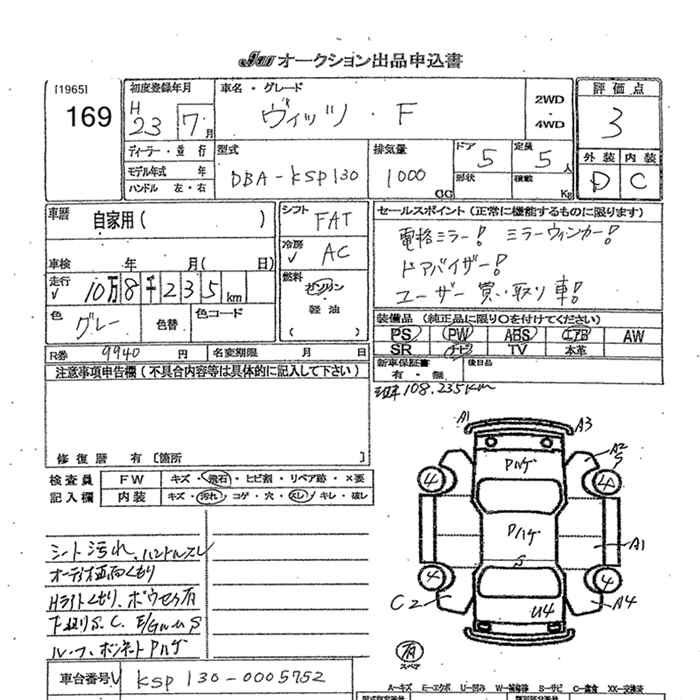 jau オークション出品申込書
[1965]
169
初度登録年月
H
23 7月
車名・グレード
ヴィッツ・F
2WD
・
4WD
評価点
3
ディーラー・並行
モデル年式 年
ハンドル 左・右
型式
DBA-KSP130
排気量
1000
CC
ドア 5
形状
定員 5人
積載 Kg
外装 内装
D C
車歴 自家用( )
車検 年 月( 日)
走行 10万8千235km
色 グレー
色替
色コード
シフト FAT
冷房 AC
燃料 ガソリン
・
軽油
( )
セールスポイント(正常に機能するものに限ります)
電格ミラー! ミラーウィンカー!
ドアバイザー!
ユーザー買い取り車!
装備品 (純正品に限り○を付けてください)
PS PW ABS エアB AW
SR ナビ TV 本革
R券 9940円 名変期限 月 日
新車保証書
有・無
後日品
108.235km
注意事項申告欄(不具合内容等は具体的に記入して下さい)
修復歴 有〔箇所 〕
検査員
記入欄
FW キズ・飛石・ヒビ割・リペア跡・×要
内装 キズ・汚れ・コゲ・穴・スレ・キレ・破レ
シート汚れ、ハンドルスレ
オーディオ画面くもり
Hライトくもり、ボウセイ有
下廻りS.C. E/GルームS
ルーフ、ボンネットPハゲ
車台番号 KSP130-0005752
A1
A3
A2
S
Pハゲ
4
4
Pハゲ
A1
S
4
4
C2
U4
A4
有
スペア
A-キズ E-エクボ U-凹み W-補修跡 S-サビ C-腐食 XX-交換済